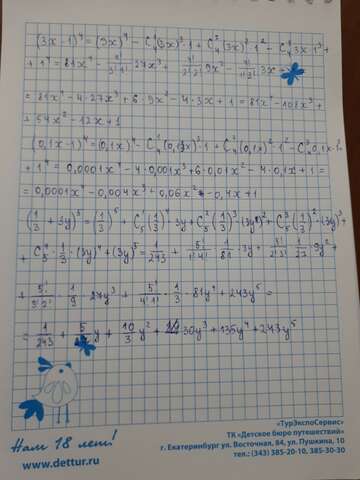 (3x-1)⁴ = (3x)⁴ - C₄¹(3x)³·1 + C₄²(3x)²·1² - C₄³3x·1³ +
+ 1⁴ = 81x⁴ - 4!/3!1! 27x³ + 4!/2!2! 9x² - 4!/1!3! 3x +
= 81x⁴ - 4·27x³ + 6·9x² - 4·3x + 1 = 81x⁴ - 108x³ +
+ 54x² - 12x + 1
(0,1x-1)⁴ = (0,1x)⁴ - C₄¹(0,1x)³·1 + C₄²(0,1x)²·1² - C₄³0,1x·1³
+ 1⁴ = 0,0001x⁴ - 4·0,001x³ + 6·0,01x² - 4·0,1x + 1 =
= 0,0001x⁴ - 0,004x³ + 0,06x² - 0,4x + 1
(1/3 + 3y)⁵ = (1/3)⁵ + C₅¹(1/3)⁴·3y + C₅²(1/3)³·(3y)² + C₅³(1/3)²·(3y)³ +
+ C₅⁴·1/3·(3y)⁴ + (3y)⁵ = 1/243 + 5!/1!4!·1/81·3y + 5!/2!3!·1/27·9y² +
+ 5!/3!2!·1/9·27y³ + 5!/4!1!·1/3·81y⁴ + 243y⁵ =
= 1/243 + 5/27 y + 10/3 y² + 30y³ + 135y⁴ + 243y⁵
Нам 18 лет!
www.dettur.ru
«ТурЭкспоСервис»
ТК «Детское бюро путешествий»
г. Екатеринбург ул. Восточная, 84, ул. Пушкина, 10
тел.: (343) 385-20-10, 385-30-30